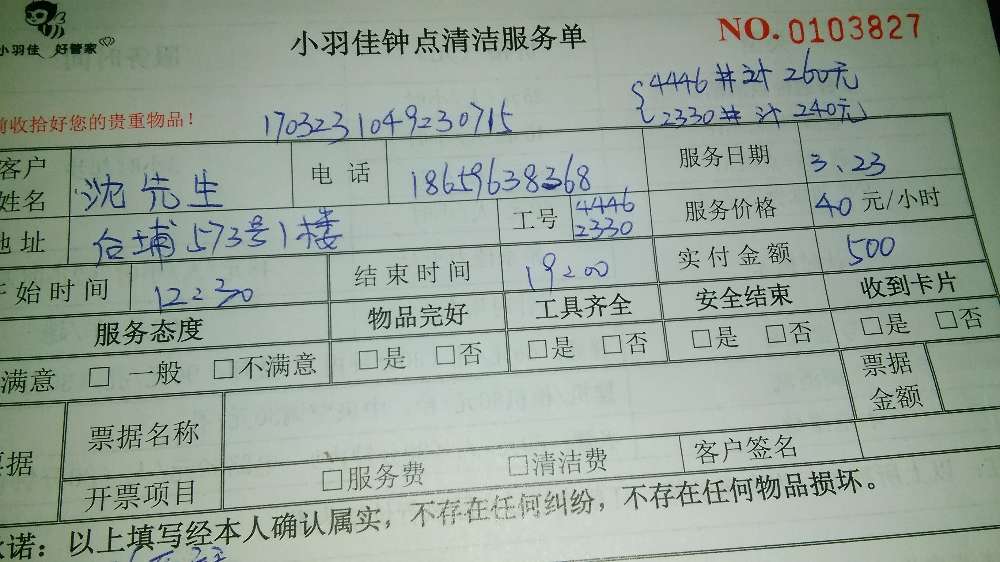 小羽佳 好管家
小羽佳钟点清洁服务单
NO. 0103827
4446 井 计 260元
2330 井 计 240元
前收拾好您的贵重物品！
170323104923 0715
客户姓名 沈先生 电话 18659638368 服务日期 3.23
地址 台埔573号1楼 工号 4446 2330 服务价格 40 元/小时
开始时间 12:30 结束时间 19:00 实付金额 500
服务态度 物品完好 工具齐全 安全结束 收到卡片
满意 □ 一般 □不满意 □是 □否 □是 □否 □是 □否 □是 □否
票据 票据名称 票据金额
开票项目 □服务费 □清洁费 客户签名
承诺：以上填写经本人确认属实，不存在任何纠纷，不存在任何物品损坏。